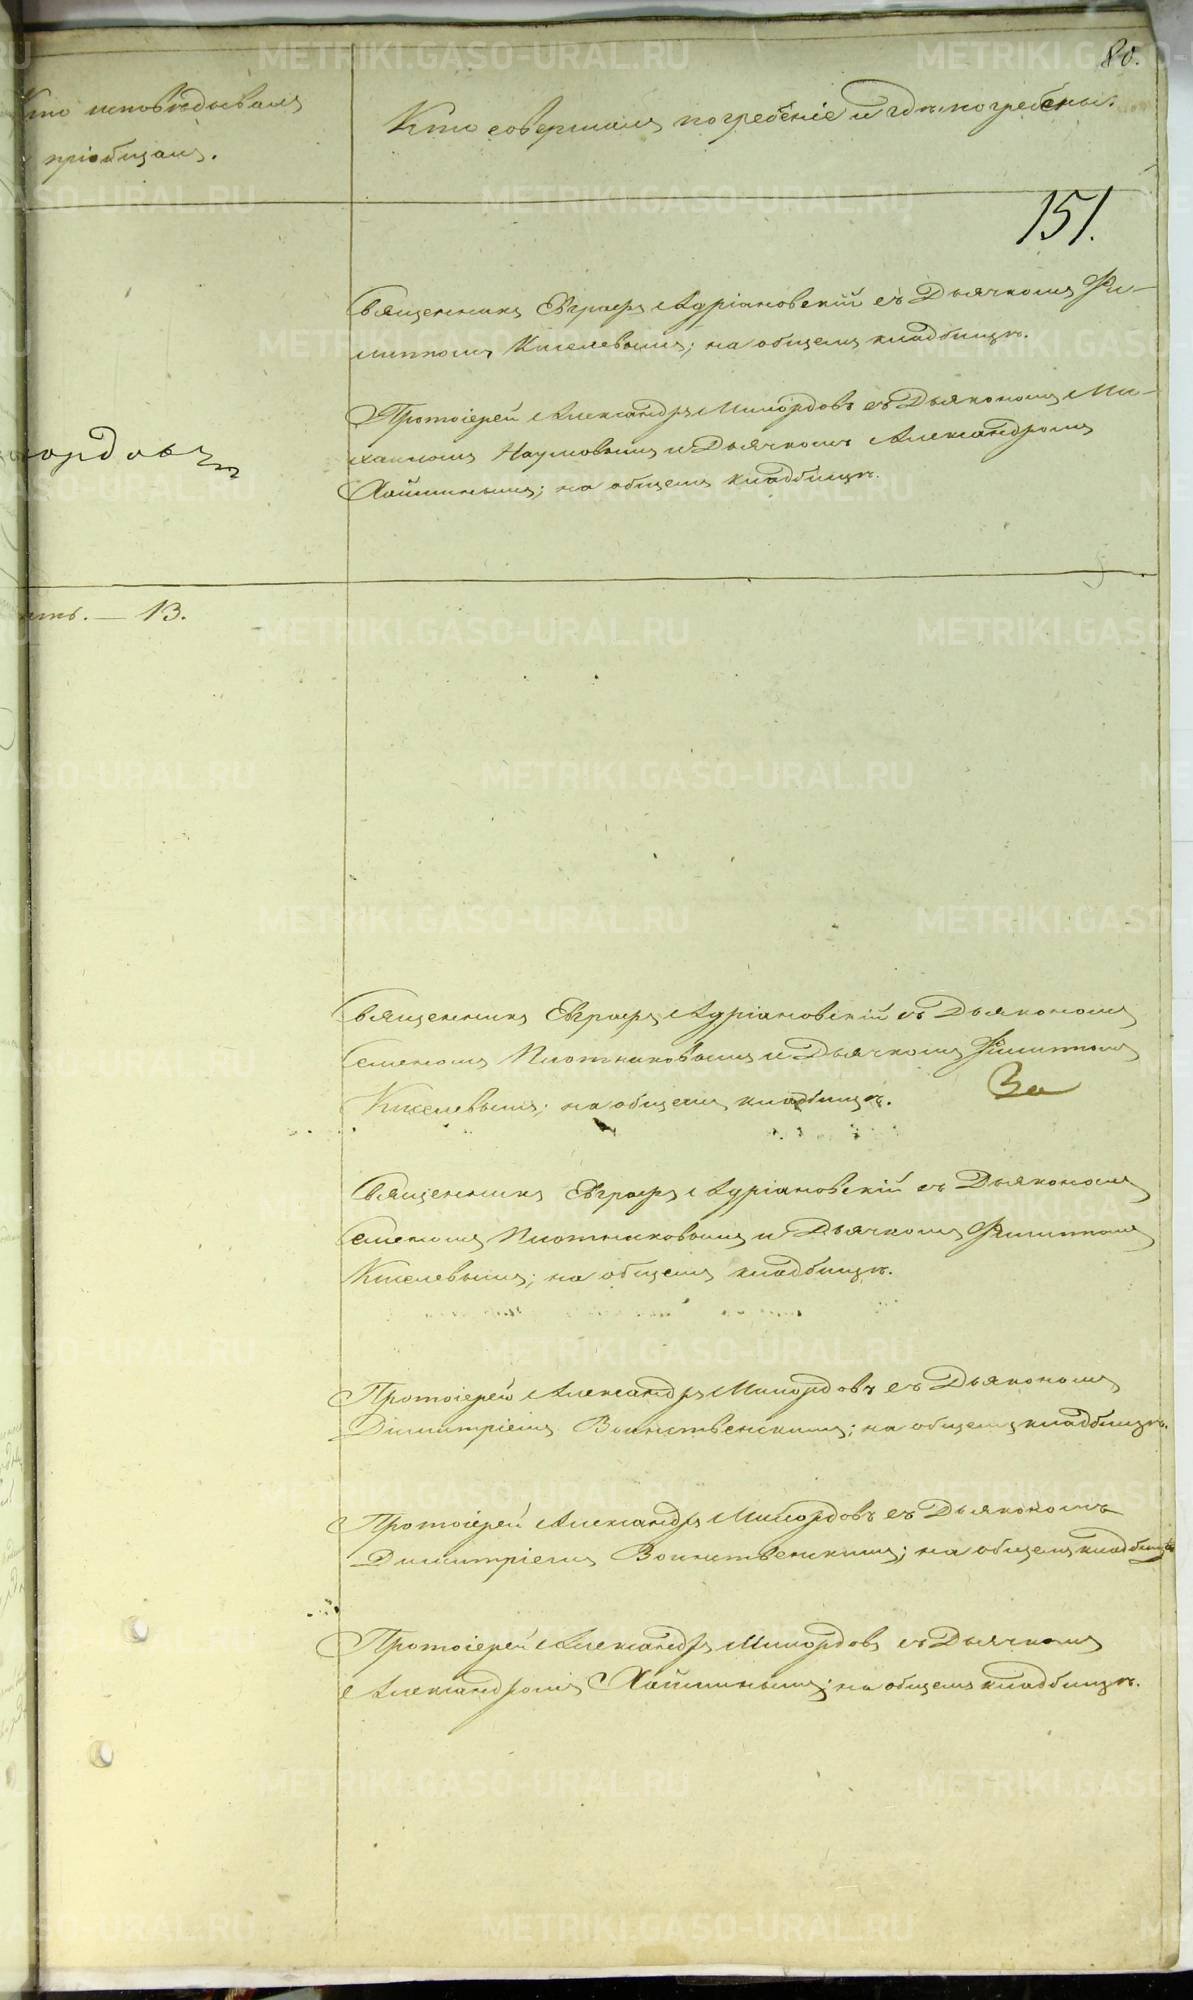 80.
Кто исповѣдывалъ
пріобщалъ.
Кто совершалъ погребеніе и гдѣ погребены.
151.
Священникъ Евграфъ Адріановскій съ Дьячкомъ Фи-
липпомъ Киселевымъ; на общемъ кладбищѣ.
Протоіерей Александръ Милордовъ съ Дьякономъ Ми-
хаиломъ Наумовымъ и Дьячкомъ Александромъ
Хайминымъ; на общемъ кладбищѣ.
ордовъ
13.
Священникъ Евграфъ Адріановскій съ Дьякономъ
Семеномъ Плотниковымъ и Дьячкомъ Филиппомъ
Киселевымъ; на общемъ кладбищѣ.
За
Священникъ Евграфъ Адріановскій съ Дьякономъ
Семеномъ Плотниковымъ и Дьячкомъ Филиппомъ
Киселевымъ; на общемъ кладбищѣ.
Протоіерей Александръ Милордовъ съ Дьякономъ
Димитріемъ Воинственскимъ; на общемъ кладбищѣ.
Протоіерей Александръ Милордовъ съ Дьякономъ
Димитріемъ Воинственскимъ; на общемъ кладбищѣ
Протоіерей Александръ Милордовъ съ Дьячкомъ
Александромъ Хайминымъ; на общемъ кладбищѣ.
METRIKI.GASO-URAL.RU